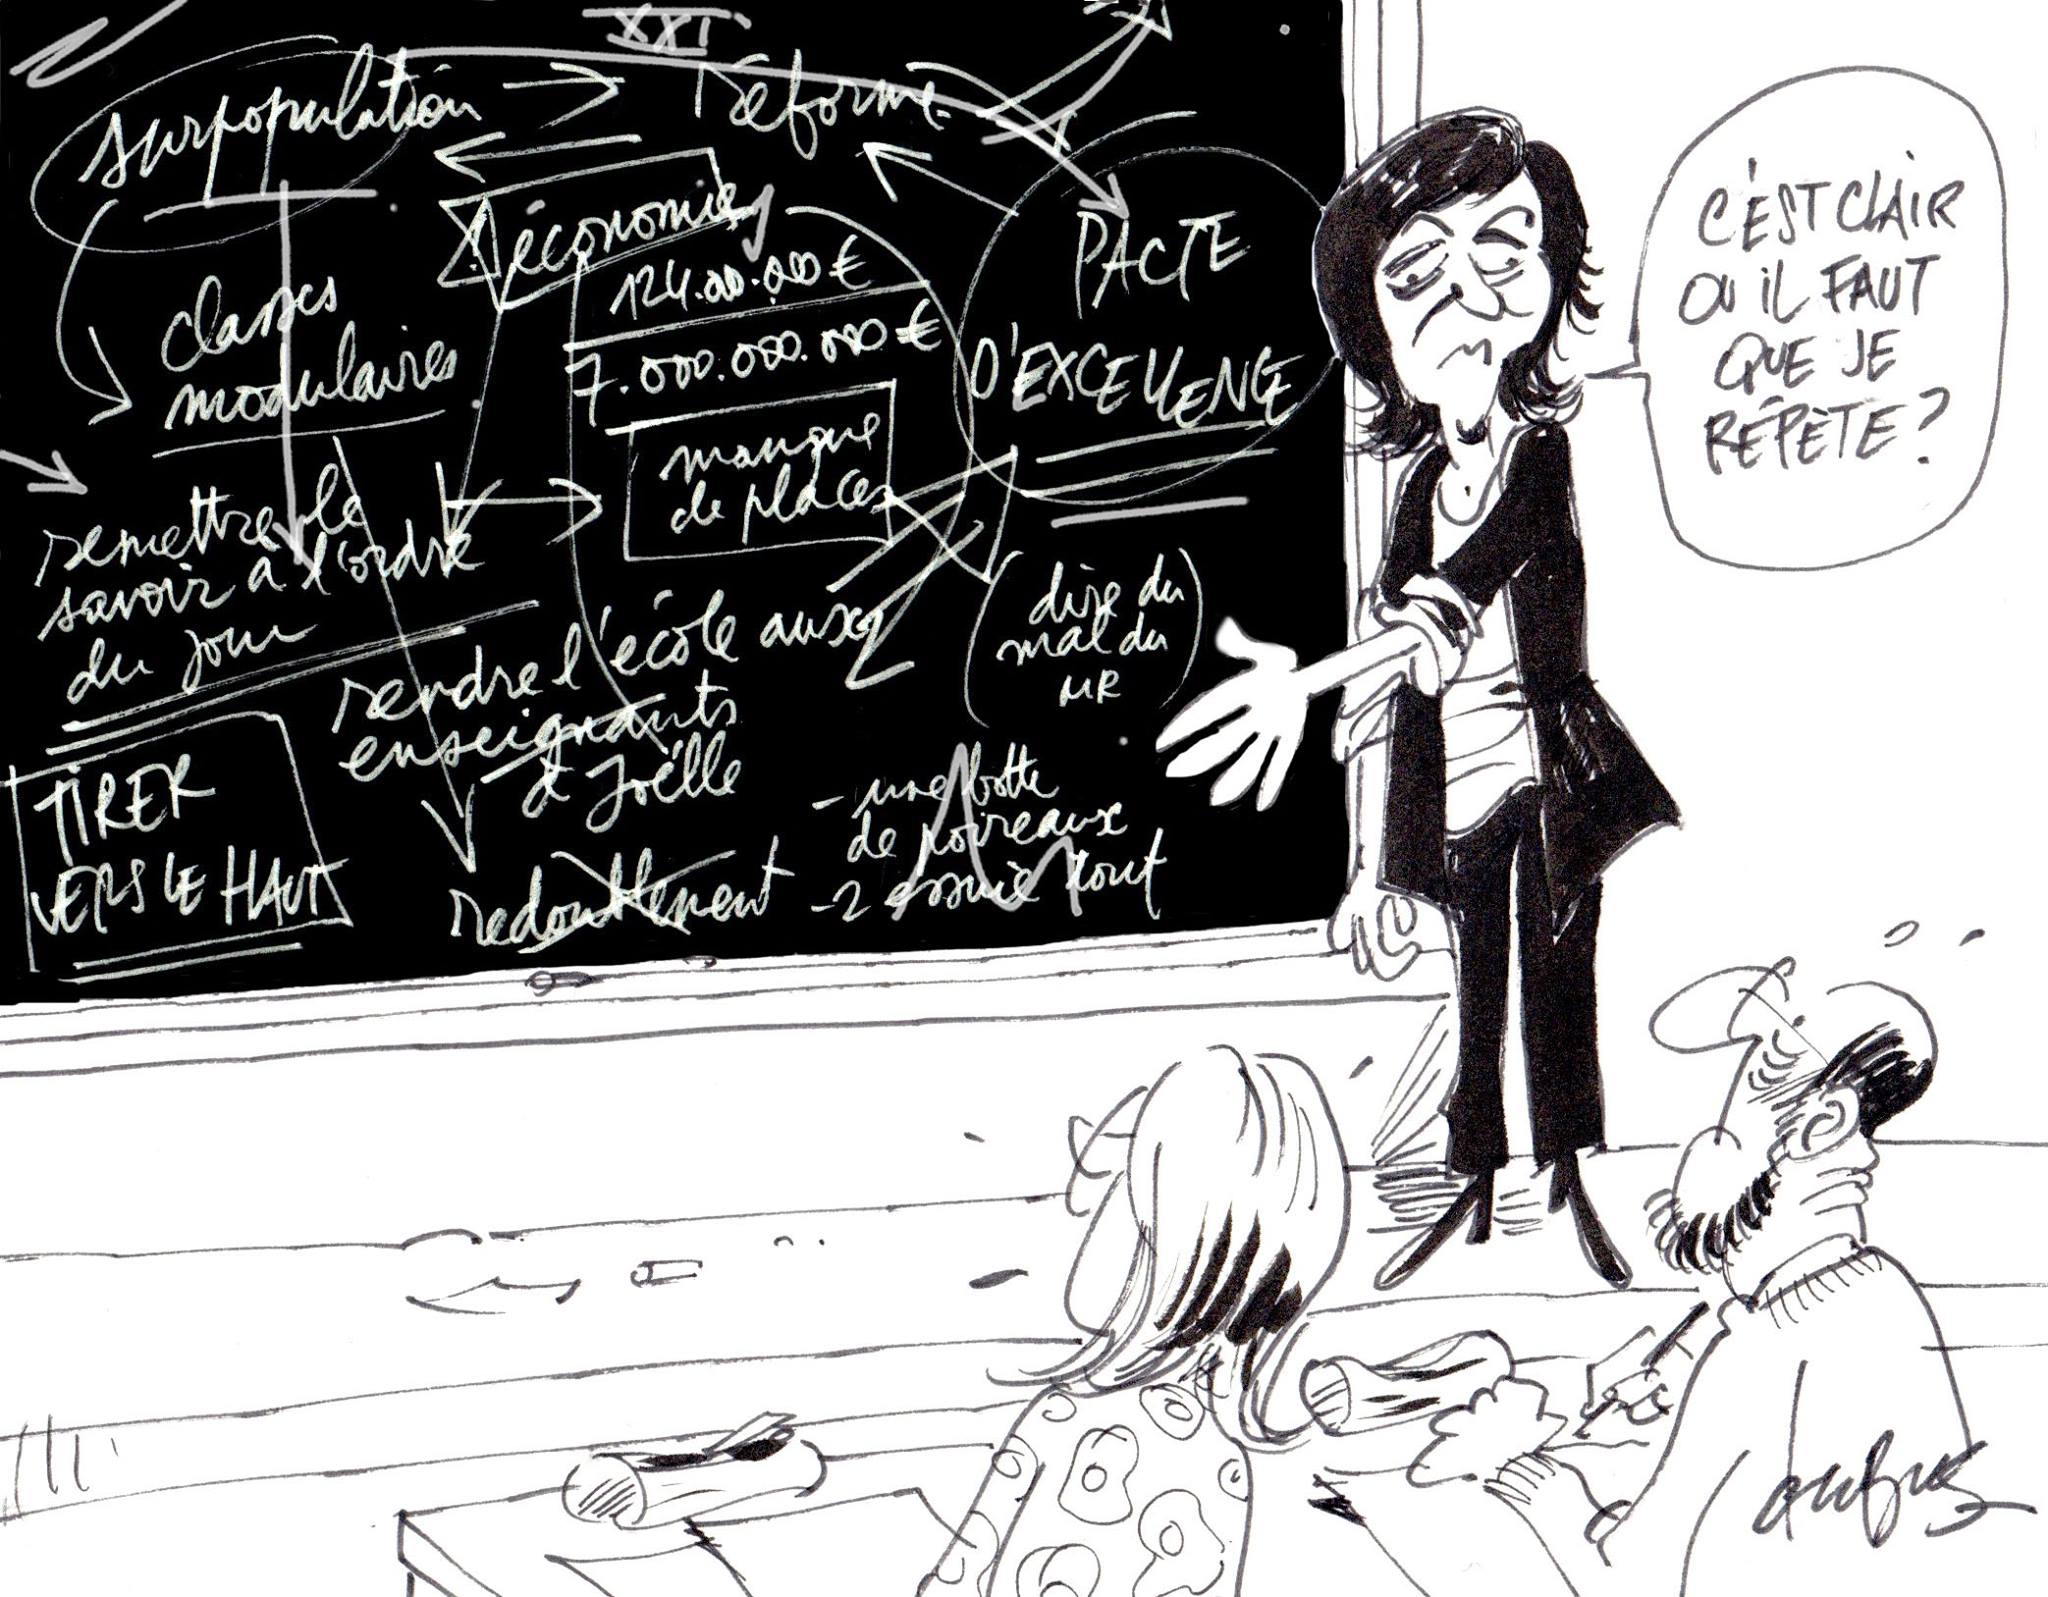 XXI
surpopulation → réforme
économies
124.000.000 €
7.000.000.000 €
PACTE
D'EXCELLENCE
classes
modulaires
manque
de places
remettre le
savoir à l'ordre
du jour
rendre l'école aux
enseignants
à Joëlle
(dire du
mal du
MR)
TIRER
VERS LE HAUT
redoublement
- une botte
de poireaux
- 2 essuie tout
C'EST CLAIR
OU IL FAUT
QUE JE
RÉPÈTE?